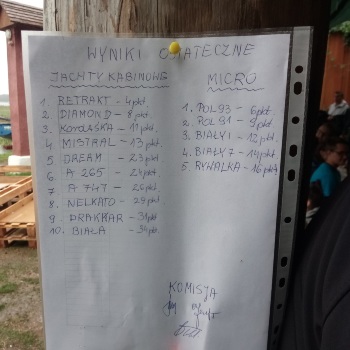 WYNIKI OSTATECZNE
JACHTY KABINOWE
1. RETRAKT - 4pkt.
2. DIAMOND - 8pkt.
3. KOWALSKA - 11pkt.
4. MISTRAL - 13pkt.
5. DREAM - 23pkt
6. A 265 - 24pkt.
7. A 747 - 26pkt
8. NELKATO - 29pkt
9. DRAKKAR - 31pkt
10. BIAŁA - 34pkt.
MICRO
1. POL93 - 6pkt
2. POL91 - 9pkt.
3. BIAŁY1 - 12pkt
4. BIAŁY7 - 14pkt
5. RYWALKA - 16pkt
KOMISJA